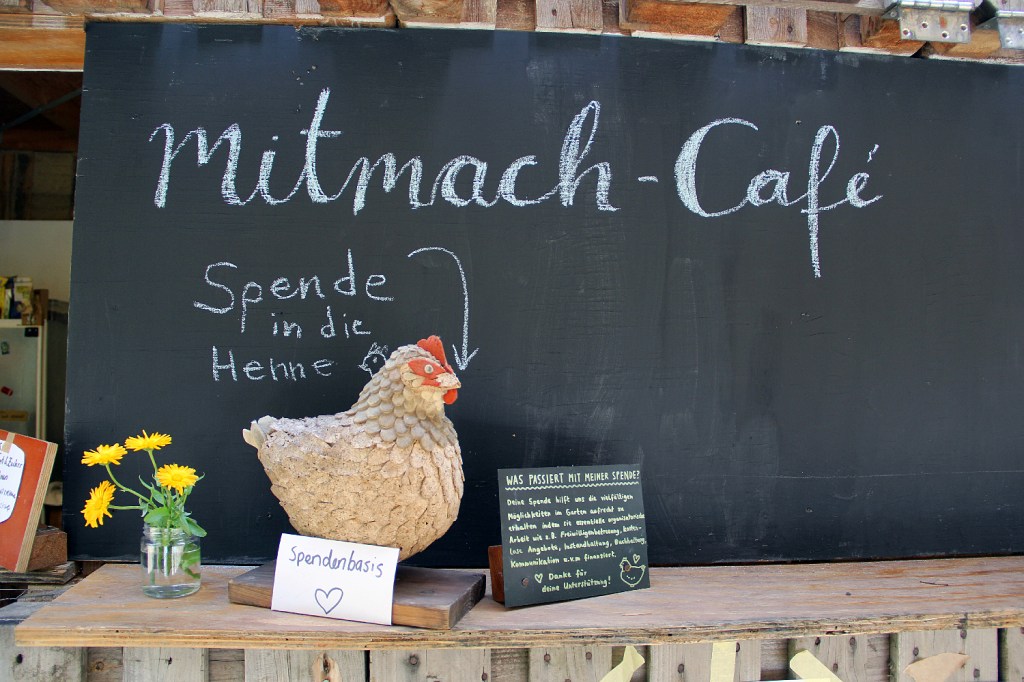 Mitmach-Café
Spende
in die
Henne
Spendenbasis
WAS PASSIERT MIT MEINER SPENDE?
Deine Spende hilft uns die vielfältigen
Möglichkeiten im Garten aufrecht zu
erhalten indem sie essentielle organisatorische
Arbeit wie z.B. Freiwilligenbetreuung, kosten-
lose Angebote, Instandhaltung, Buchhaltung,
Kommunikation u.v.m finanziert.
Danke für
deine Unterstützung!